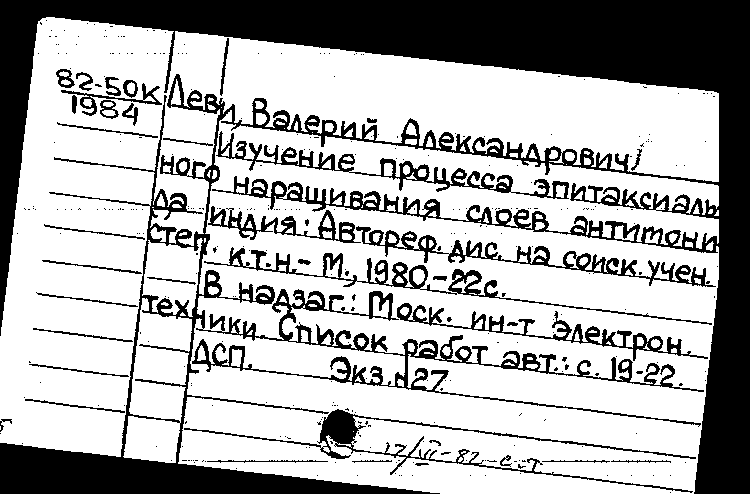 82-50к Леви, Валерий Александрович
1984
Изучение процесса эпитаксиаль
ного наращивания слоев антимони
да индия: Автореф. дис. на соиск. учен.
степ. к.т.н.- М., 1980.-22с.
В надзаг.: Моск. ин-т электрон.
техники. Список работ авт.: с. 19-22.
ДСП. Экз.№27
17/VI-82 с.т